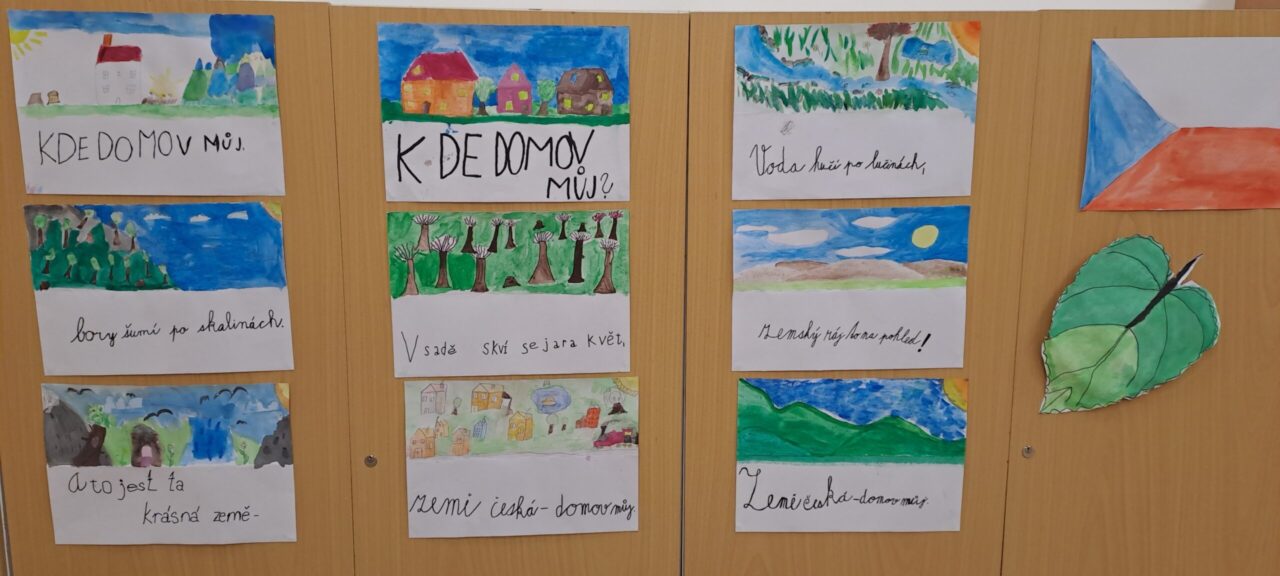 KDE DOMOV MŮJ.
KDE DOMOV
MŮJ?
Voda hučí po lučinách,
bory šumí po skalinách.
V sadě skví se jara květ,
zemský ráj to na pohled!
A to jest ta
krásná země-
země česká-domov můj.
Země česká-domov můj.